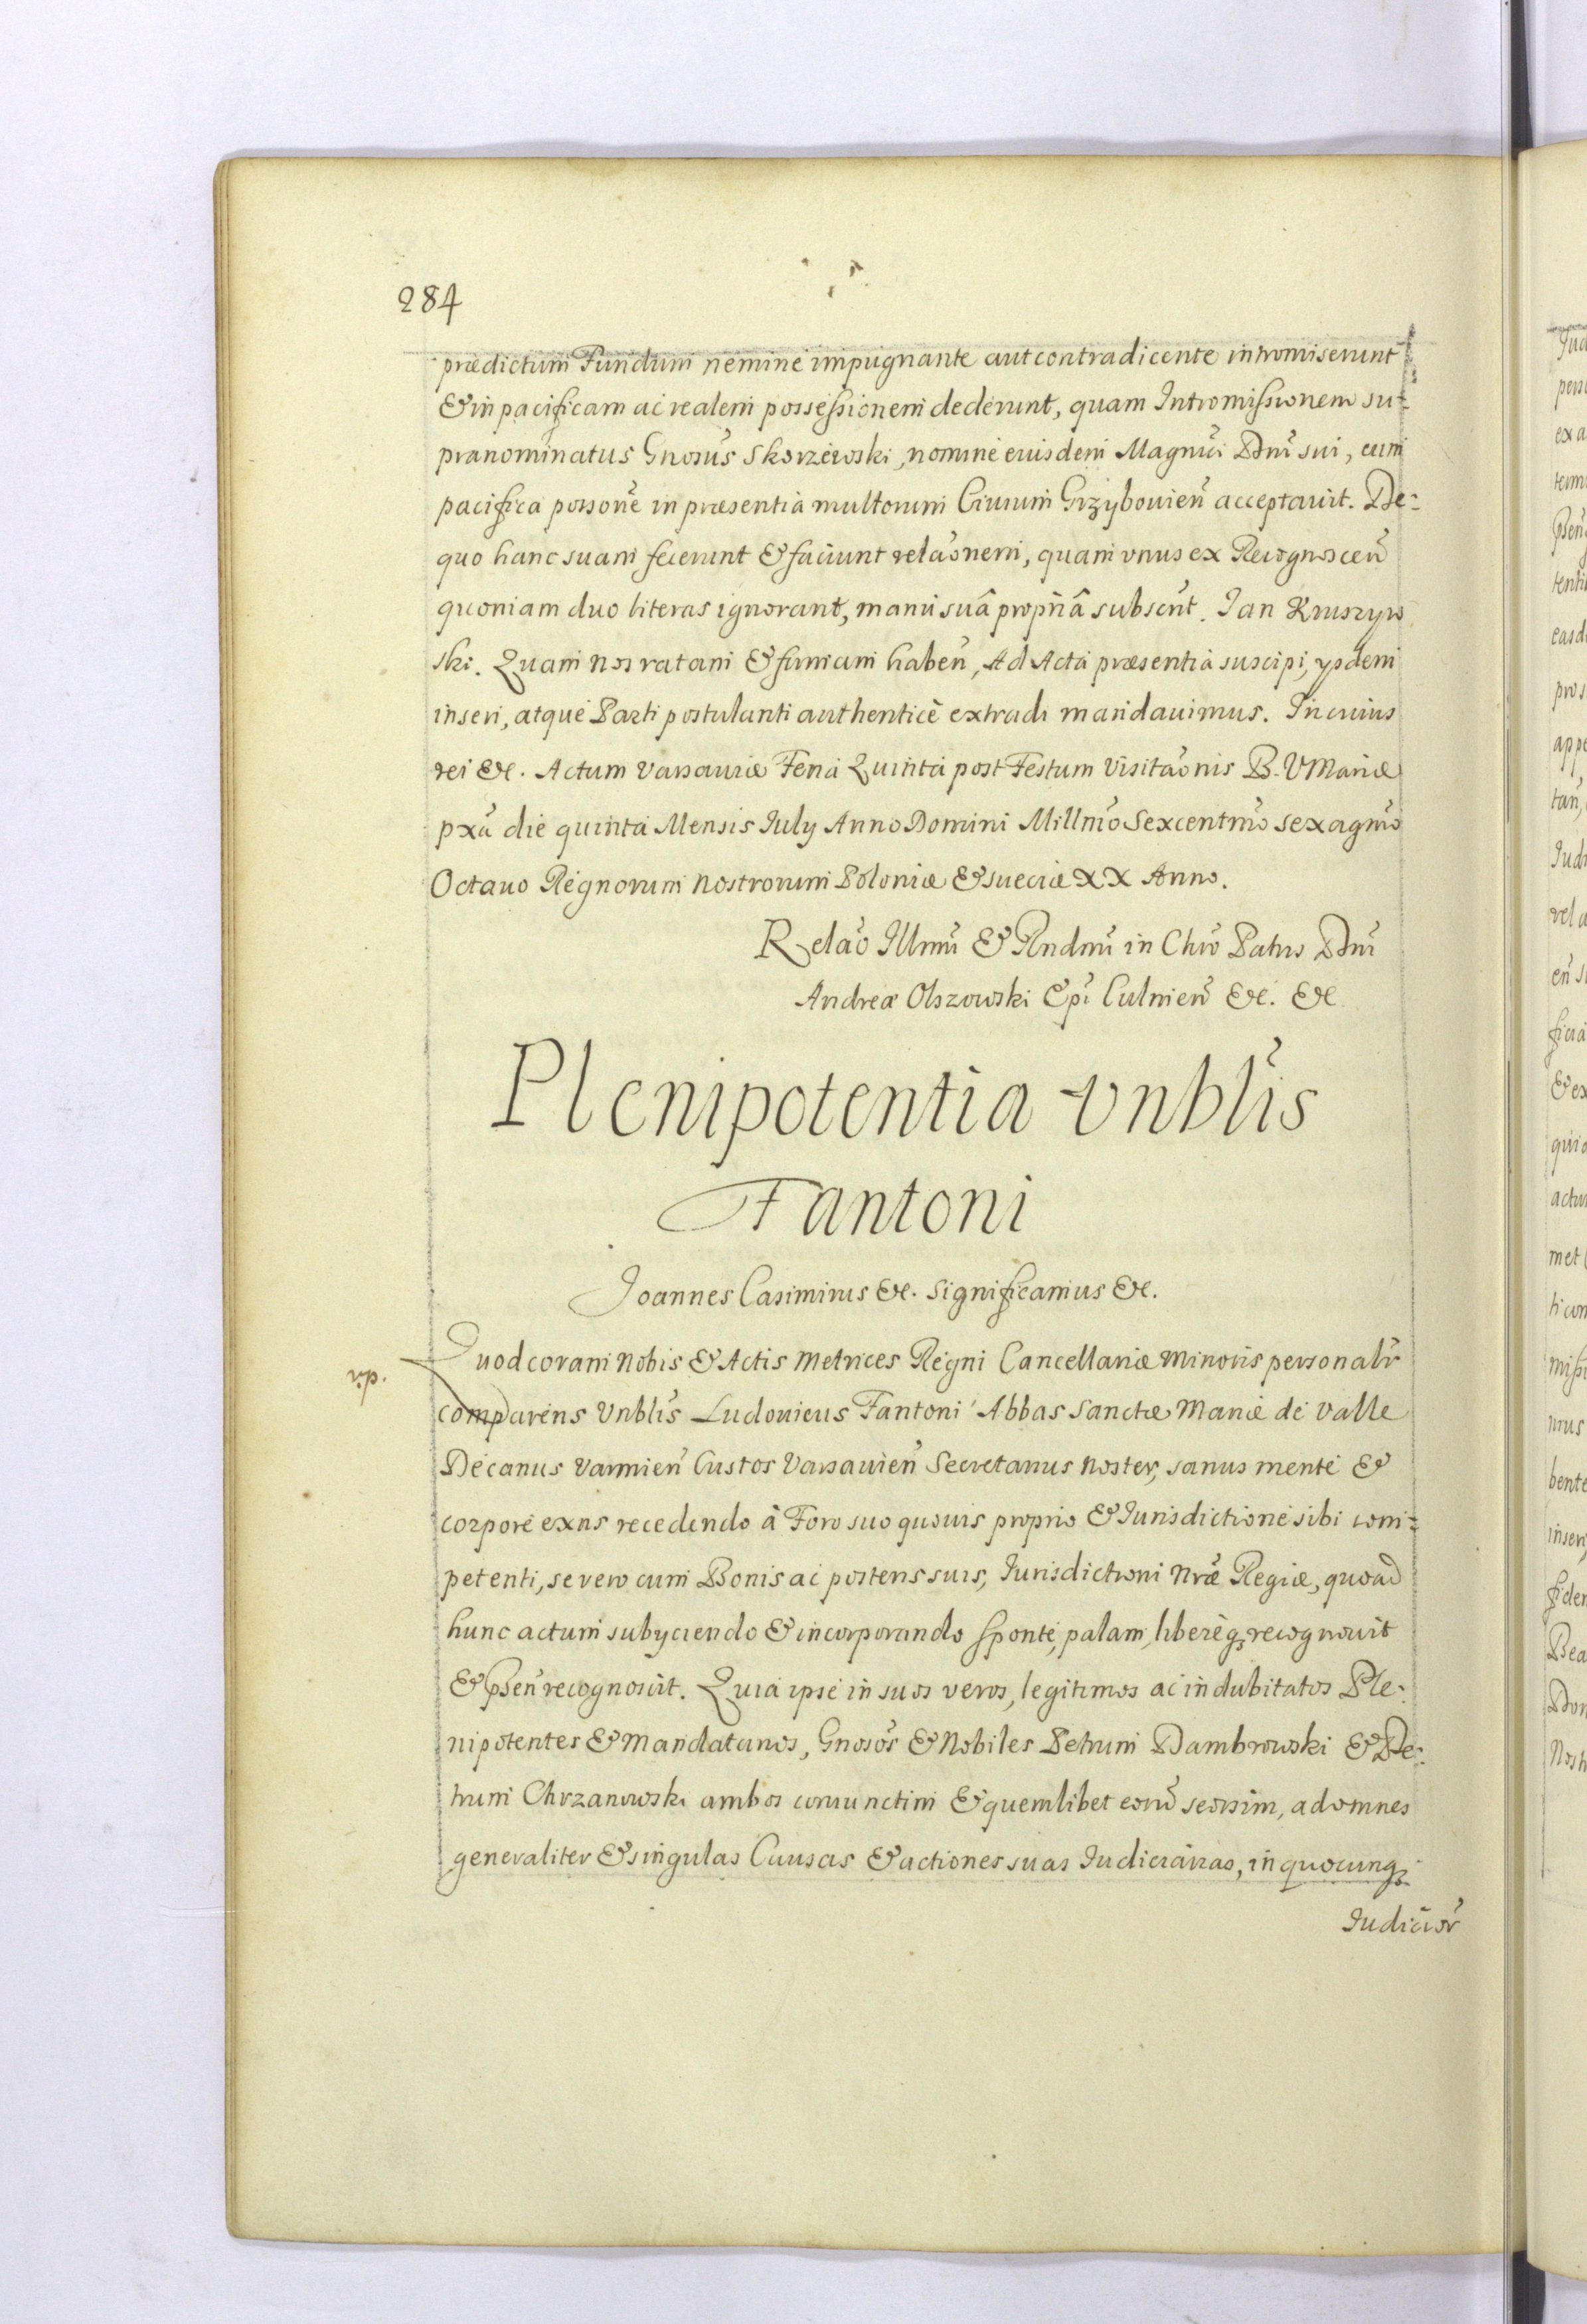 284
prædictum Fundum nemine impugnante aut contradicente intromiserunt
& in pacificam ac realem possessionem dederunt, quam Intromissionem su-
pranominatus Gnosus Skorzewski, nomine eiusdem Magnci Dni sui, cum
pacifica possone in præsentia multorum Ciuium Grzybouien acceptauit. De-
quo hanc suam fecerunt & faciunt relaonem, quam vnus ex Recognoscen
quoniam duo literas ignorant, manu suâ propriâ subscnt. Jan Kruszyw
ski. Quam nos ratam & firmam haben, Ad Acta præsentia suscipi, ysdem
inseri, atque Parti postulanti authenticè extradi mandauimus. In cuius
rei &c. Actum Varsauiæ Feria Quinta post Festum Visitaonis B. V Mariæ
pxa die quinta Mensis July Anno Domini Millmo Sexcentmo sexagmo
Octauo Regnorum Nostrorum Poloniæ & sueciæ XX Anno.
Relao Illmi & Rndmi in Chro Patris Dni
Andreæ Olszowski Epi Culmien &c. &c
Plenipotentia Vnblis
Fantoni
Joannes Casimirus &c. Significamus &c.
Quod coram Nobis & Actis Metrices Regni Cancellariæ Minoris personalr
comparens Vnblis Ludouicus Fantoni Abbas Sanctæ Mariæ de Valle
Decanus Varmien Custos Varsauien Secretarius Noster, sanus mente &
corpore exns recedendo à Foro suo quouis proprio & Iurisdictione sibi com-
petenti, se vero cum Bonis ac posteris suis, Iurisdictioni Nræ Regiæ, quoad
hunc actum subyciendo & incorporando sponte, palam, libereq recognouit
& psen recognoscit. Quia ipse in suos veros, legitimos ac indubitatos Ple-
nipotentes & Mandatarios, Gnosos & Nobiles Petrum Dambrowski & Pe-
trum Chrzanowski ambos coniunctim & quemlibet eoru seorsim, ad omnes
generaliter & singulas Causas & actiones suas Iudiciarias, in quocunq
Iudicior